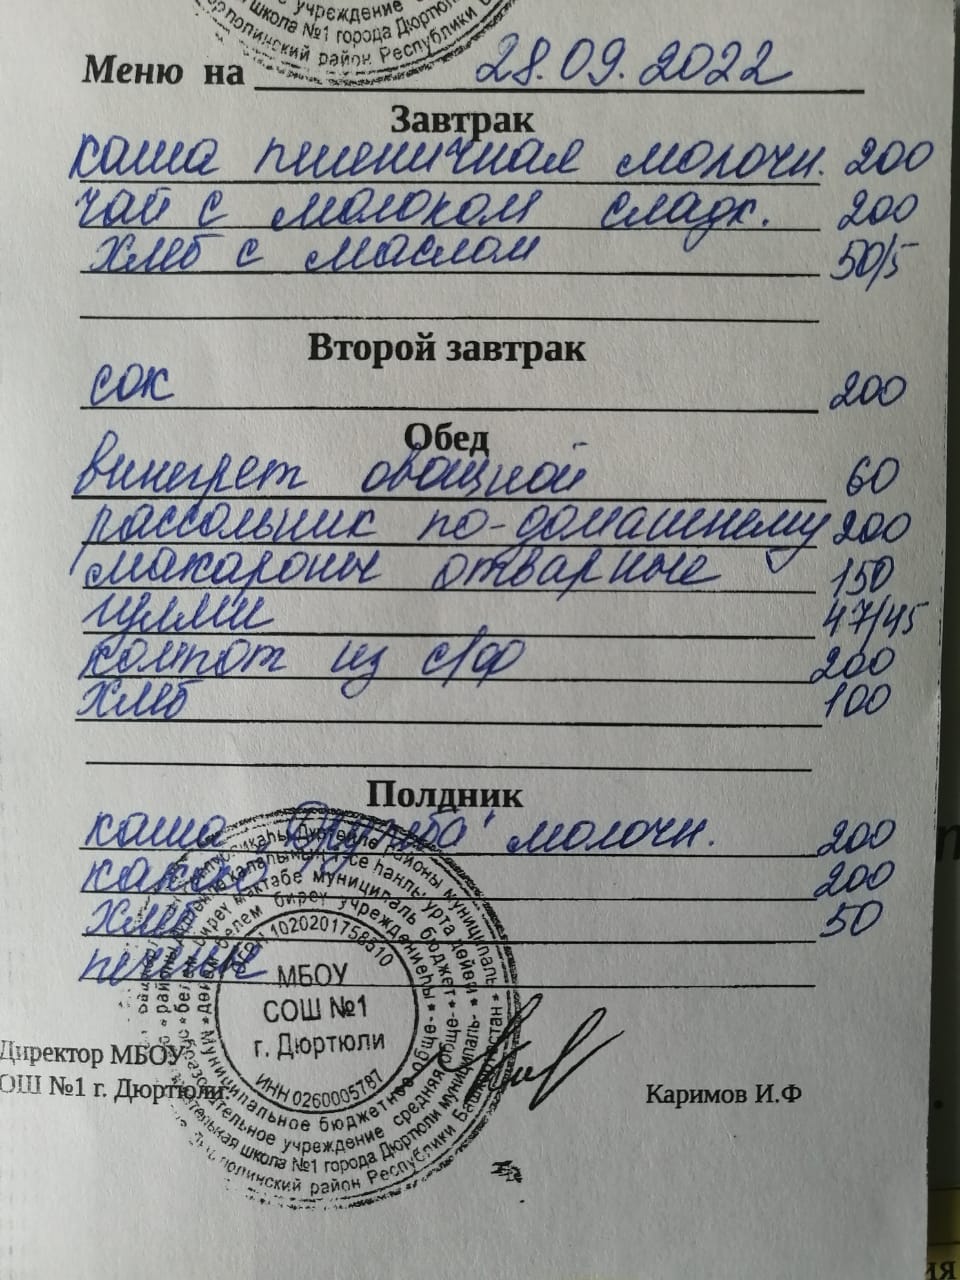 учреждение
школа №1 города Дюртюли
район Республики
Меню на 28.09.2022
Завтрак
каша пшеничная молочн. 200
чай с молоком сладк. 200
хлеб с маслом 50/5
Второй завтрак
сок 200
Обед
винегрет овощной 60
рассольник по-домашнему 200
макароны отварные 150
гуляш 47/45
компот из с/ф 200
хлеб 100
Полдник
каша "Дружба" молочн. 200
какао 200
хлеб 50
печенье
ОГРН 1020201758510
МБОУ
СОШ №1
г. Дюртюли
ИНН 0260005787
Муниципальное бюджетное обще-
образовательное учреждение средняя обще-
школа №1 города Дюртюли муниципаль-
район Республики Башкортостан
Директор МБОУ
ОШ №1 г. Дюртюли.
Каримов И.Ф